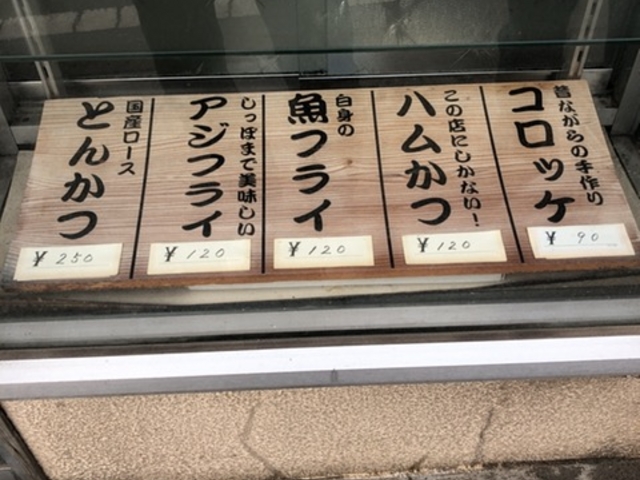 昔ながらの手作り
コロッケ
￥ 90
この店にしかない！
ハムかつ
￥ 120
白身の
魚フライ
￥ 120
しっぽまで美味しい
アジフライ
￥ 120
国産ロース
とんかつ
￥ 250